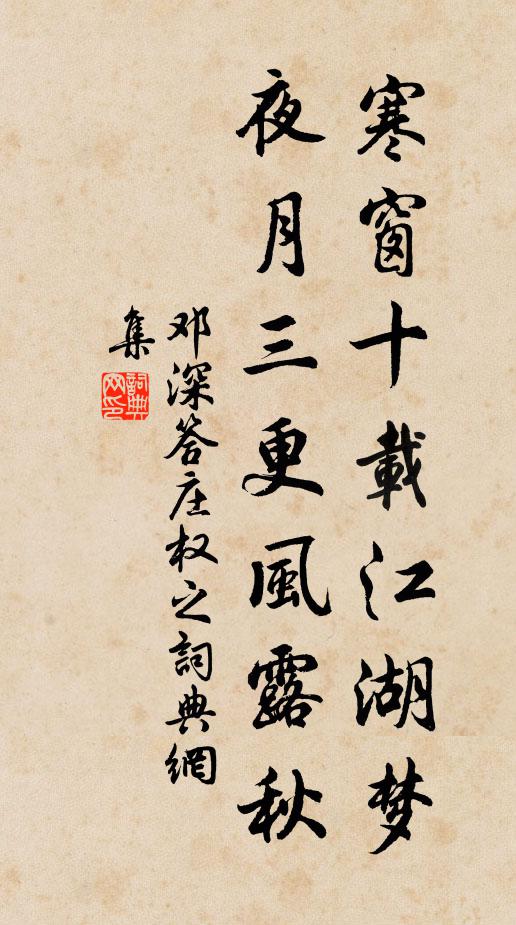 寒窗十載江湖梦
夜月三更風露秋
邓深答庄权之詞典網
集
詞典
网印